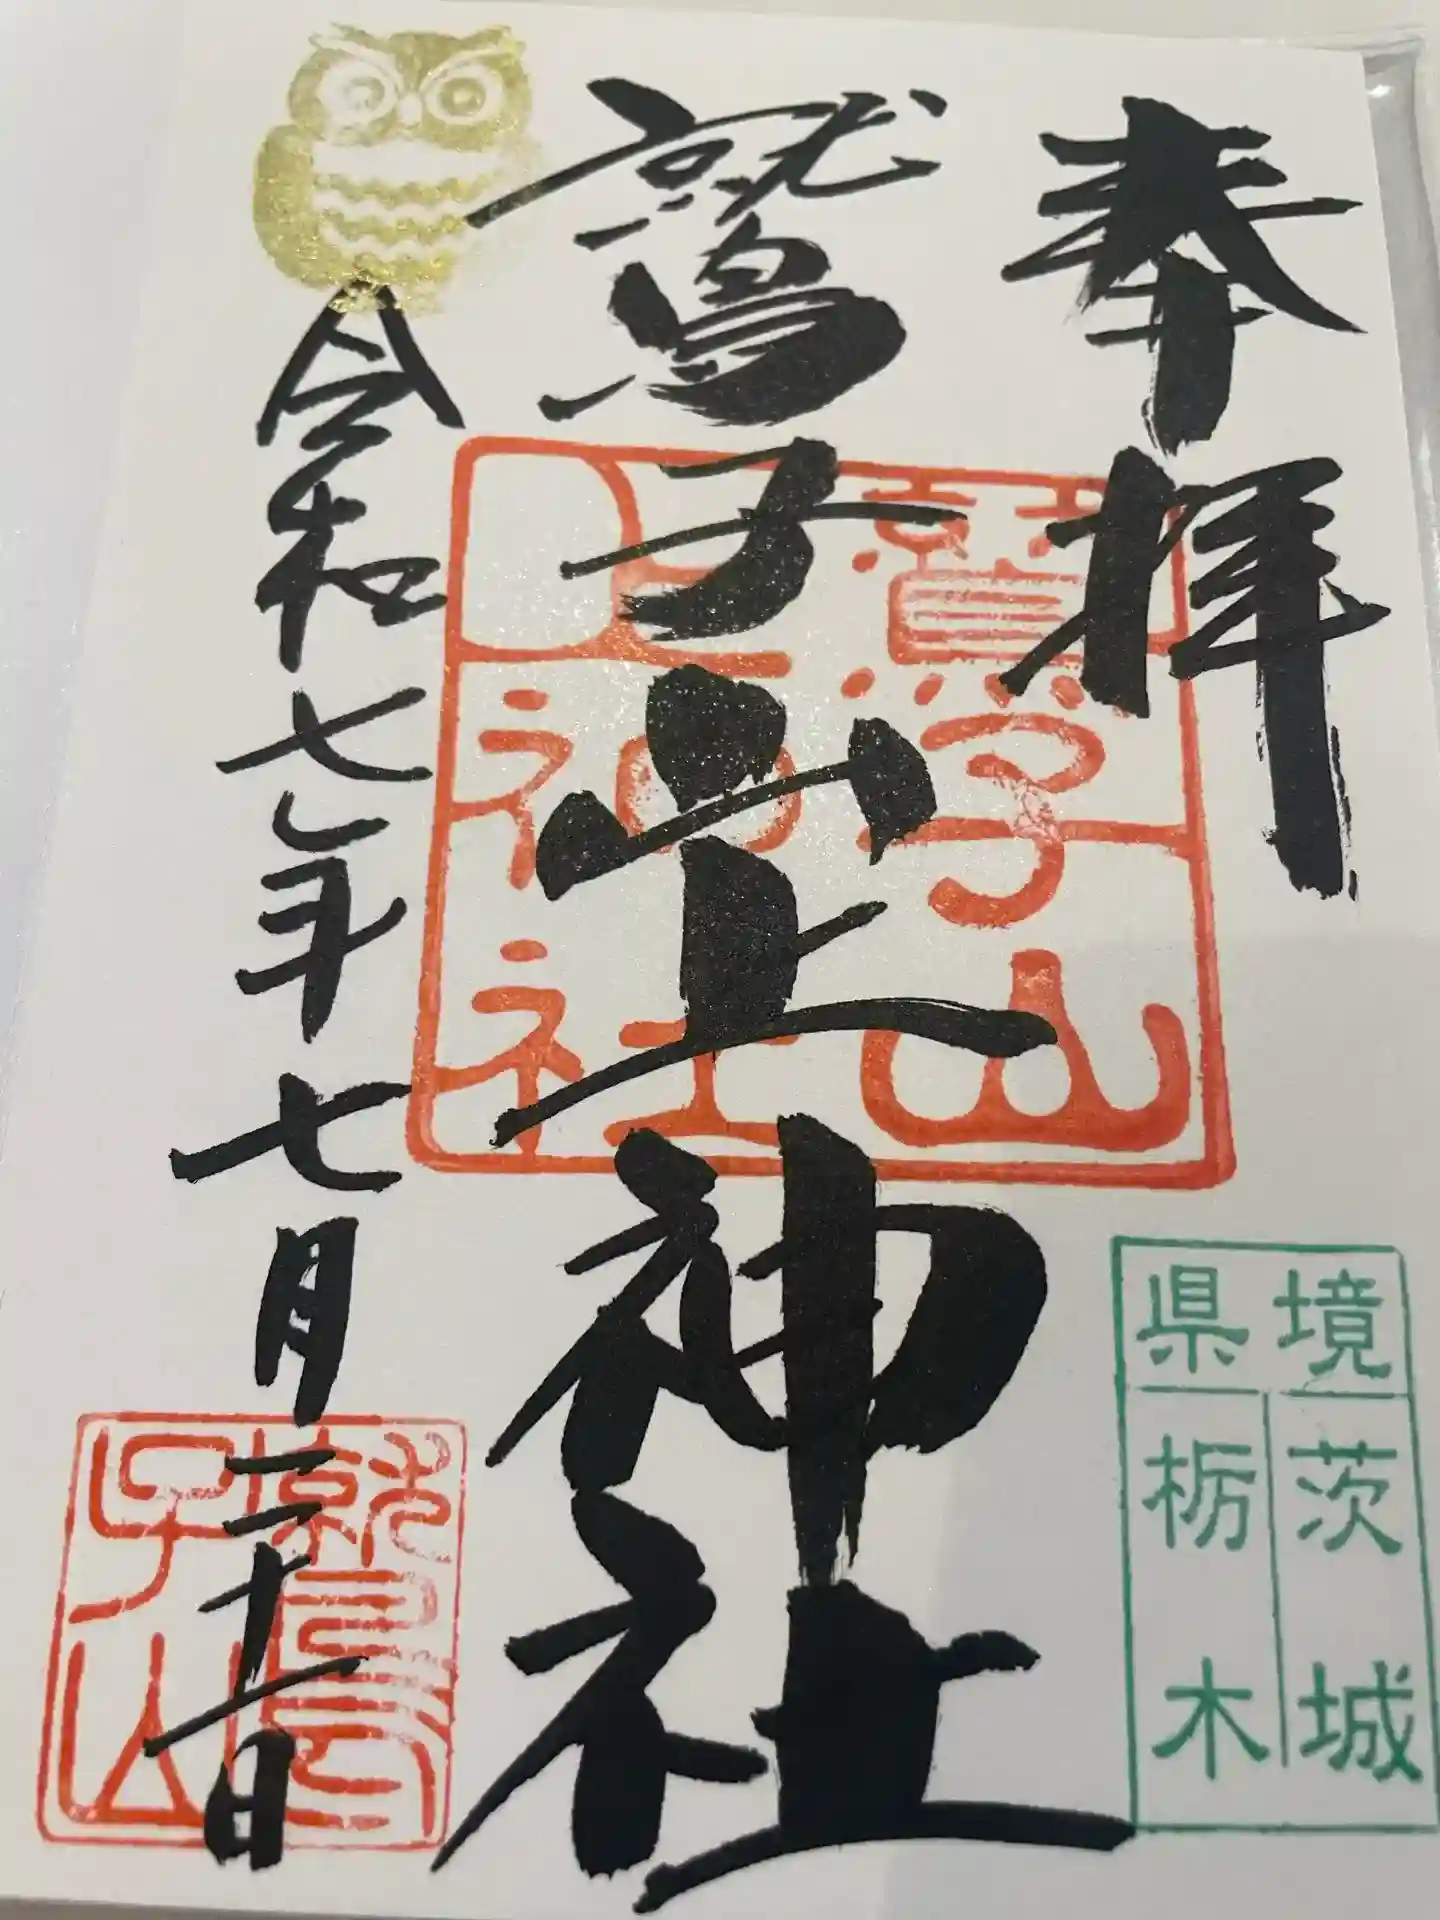 奉拝
鷲子山上神社
令和七年七月二十一日
鷲子山
上神社
鷲
子山
県境
茨城
栃木